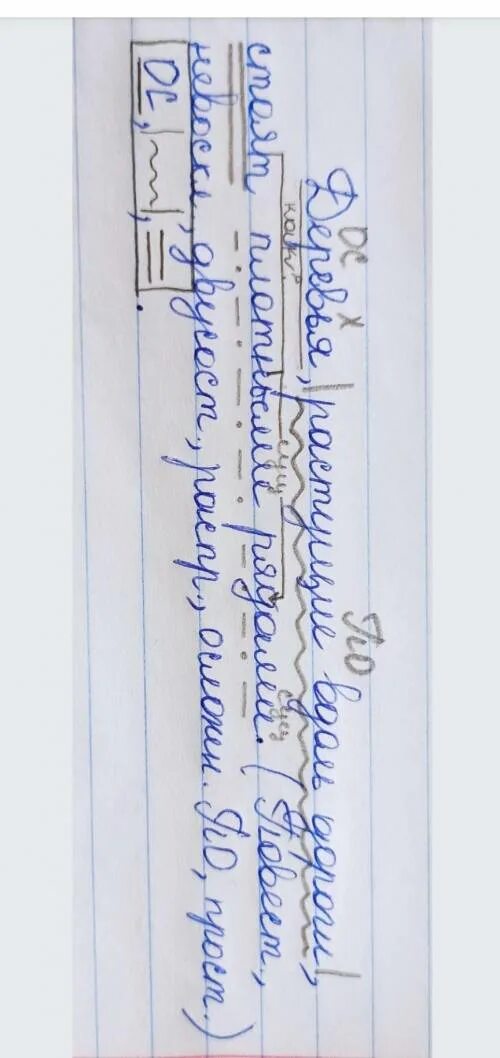 ОС х ПО
Деревья, |растущие вдоль дороги|,
как? сущ сущ
стоят плотными рядами. (Повест.,
невоскл, двусост, распр, осложн. ПО, прост.)
[ОС, |~~~|, ═].